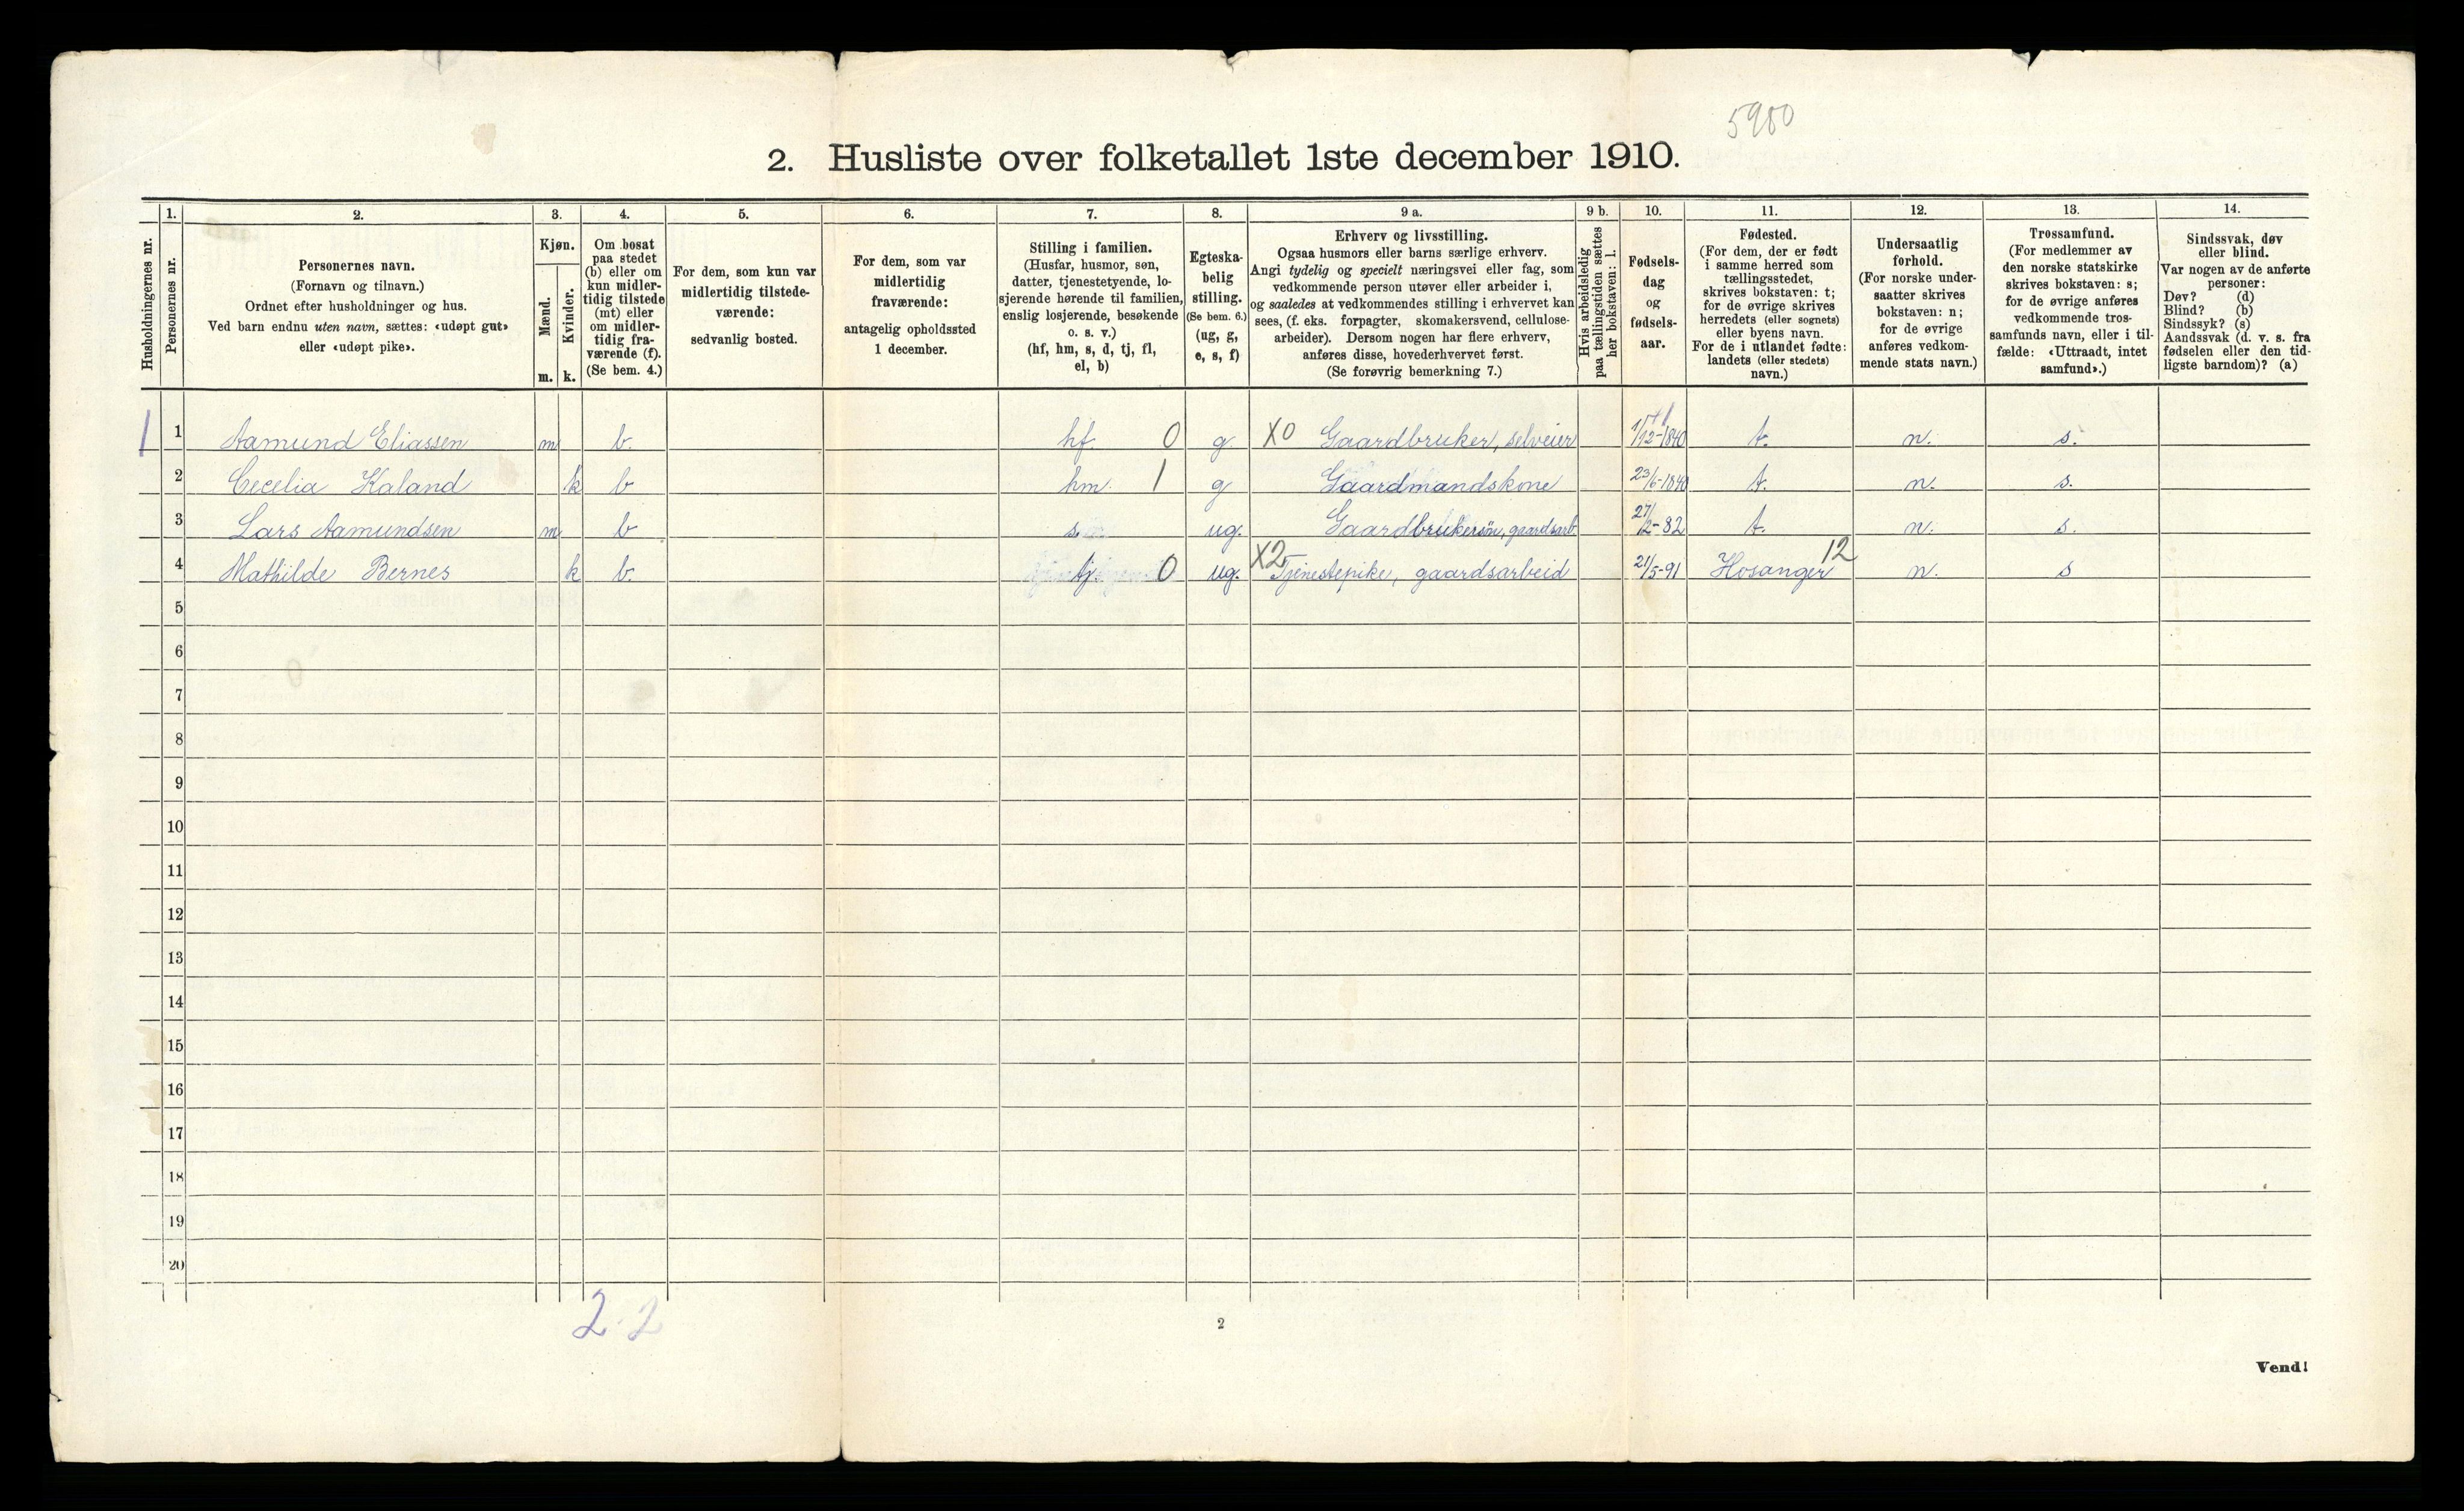 5980
2. Husliste over folketallet 1ste december 1910.
Husholdningernes nr.
1.
Personernes nr.
2.
Personernes navn.
(Fornavn og tilnavn.)
Ordnet efter husholdninger og hus.
Ved barn endnu uten navn, sættes: «udøpt gut»
eller «udøpt pike».
3.
Kjøn.
Mænd.
Kvinder.
m. k.
4.
Om bosat
paa stedet
(b) eller om
kun midler-
tidig tilstede
(mt) eller
om midler-
tidig fra-
værende (f).
(Se bem. 4.)
5.
For dem, som kun var
midlertidig tilstede-
værende:
sedvanlig bosted.
6.
For dem, som var
midlertidig
fraværende:
antagelig opholdssted
1 december.
7.
Stilling i familien.
(Husfar, husmor, søn,
datter, tjenestetyende, lo-
sjerende hørende til familien,
enslig losjerende, besøkende
o. s. v.)
(hf, hm, s, d, tj, fl,
el, b)
8.
Egteska-
belig
stilling.
(Se bem. 6.)
(ug, g,
e, s, f)
9 a.
Erhverv og livsstilling.
Ogsaa husmors eller barns særlige erhverv.
Angi tydelig og specielt næringsvei eller fag, som
vedkommende person utøver eller arbeider i,
og saaledes at vedkommendes stilling i erhvervet kan
sees, (f. eks. forpagter, skomakersvend, cellulose-
arbeider). Dersom nogen har flere erhverv,
anføres disse, hovederhvervet først.
(Se forøvrig bemerkning 7.)
9 b.
Hvis arbeidsledig
paa tællingstiden sættes
her bokstaven: l.
10.
Fødsels-
dag
og
fødsels-
aar.
11.
Fødested.
(For dem, der er født
i samme herred som
tællingsstedet,
skrives bokstaven: t;
for de øvrige skrives
herredets (eller sognets)
eller byens navn.
For de i utlandet fødte:
landets (eller stedets)
navn.)
12.
Undersaatlig
forhold.
(For norske under-
saatter skrives
bokstaven: n;
for de øvrige
anføres vedkom-
mende stats navn.)
13.
Trossamfund.
(For medlemmer av
den norske statskirke
skrives bokstaven: s;
for de øvrige anføres
vedkommende tros-
samfunds navn, eller i til-
fælde: «Uttraadt, intet
samfund».)
14.
Sindssvak, døv
eller blind.
Var nogen av de anførte
personer:
Døv? (d)
Blind? (b)
Sindssyk? (s)
Aandssvak (d. v. s. fra
fødselen eller den tid-
ligste barndom)? (a)
1 1 Aamund Eliassen m b. hf. 0 g. X0 Gaardbruker, selveier 1/12-1840 t. n. s.
2 Cecelia Kaland k b hm. 1 g Gaardmandskone 23/6-1840 t. n. s.
3 Lars Aamundsen m b s. ug. Gaardbrukersøn, gaardsarb. 27/2-82 t. n. s.
4 Mathilde Bernes k b. tj. 0 ug. X2 Tjenestepike, gaardsarbeid 21/5-91 Hosanger 12 n. s
5
6
7
8
9
10
11
12
13
14
15
16
17
18
19
20
2-2
2
Vend!